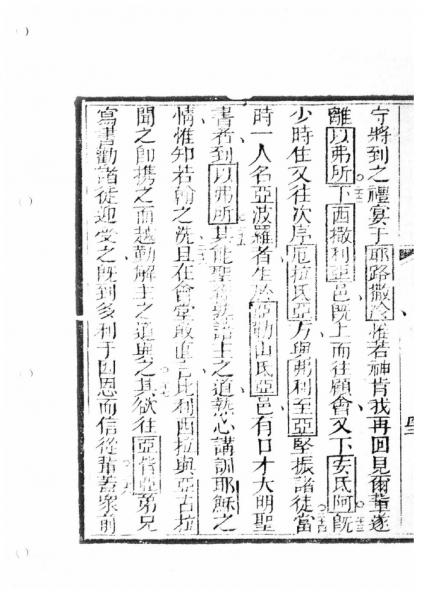 守將到之禮宴于耶路撒冷惟若神肯我再回見爾輩遂
離以弗所下西撒利亞邑既上而往顧會又下安氏阿既
少時住又往次序厄拉氏亞方與弗利至亞堅振諸徒當
時一人名亞波羅者生於亞勒山氏亞邑有口才大明聖
書者到以弗所其能聖者主之道熱心講訓耶穌之
情惟知若翰之洗且在會堂敢直言比利西拉與亞古拉
聞之即携之而越勤解主之道與之其欲往亞皆亞弟兄
寫書勸諸徒迎受之既到多利于因恩而信從輩蓋眾前